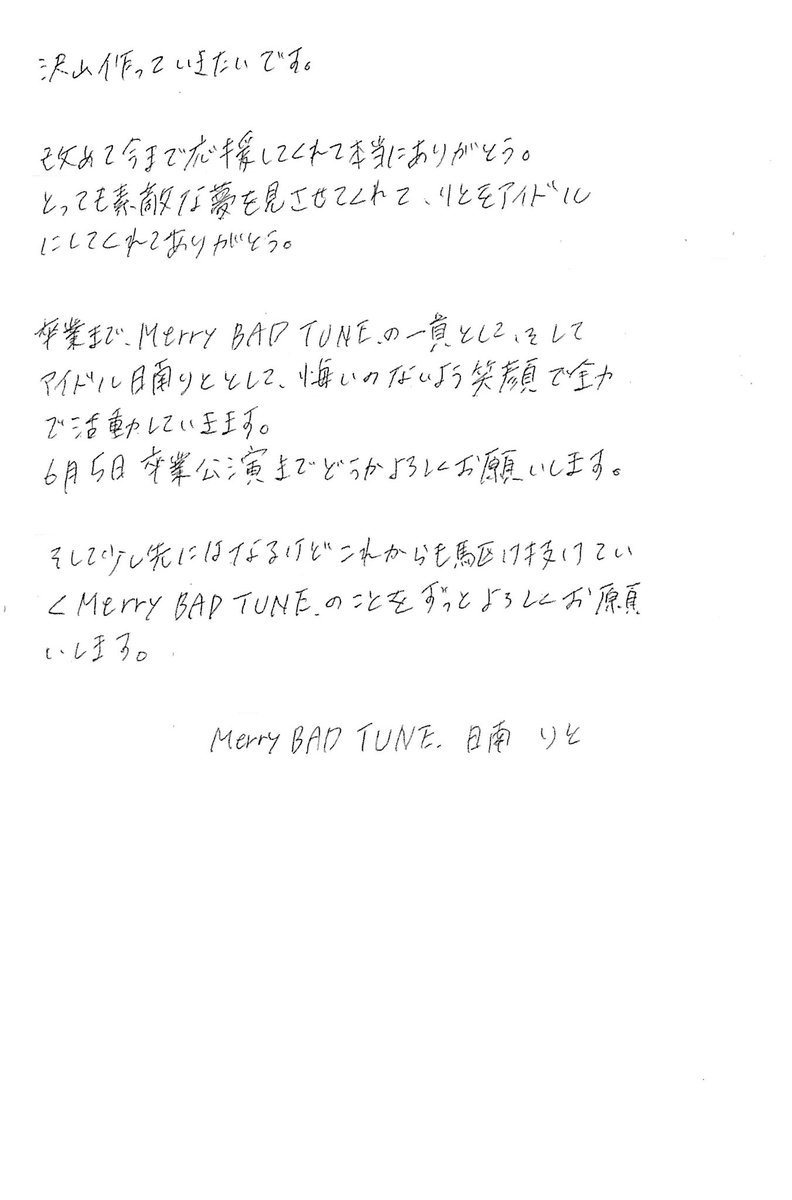 沢山作っていきたいです。
改めて今まで応援してくれて本当にありがとう。
とっても素敵な夢を見させてくれて、りとをアイドル
にしてくれてありがとう。
卒業まで、Merry BAD TUNE.の一員として、そして
アイドル日南りととして、悔いのないよう笑顔で全力
で活動していきます。
6月5日卒業公演までどうかよろしくお願いします。
そして少し先にはなるけどこれからも駆け抜けてい
くMerry BAD TUNE.のことをずっとよろしくお願
いします。
Merry BAD TUNE. 日南 りと